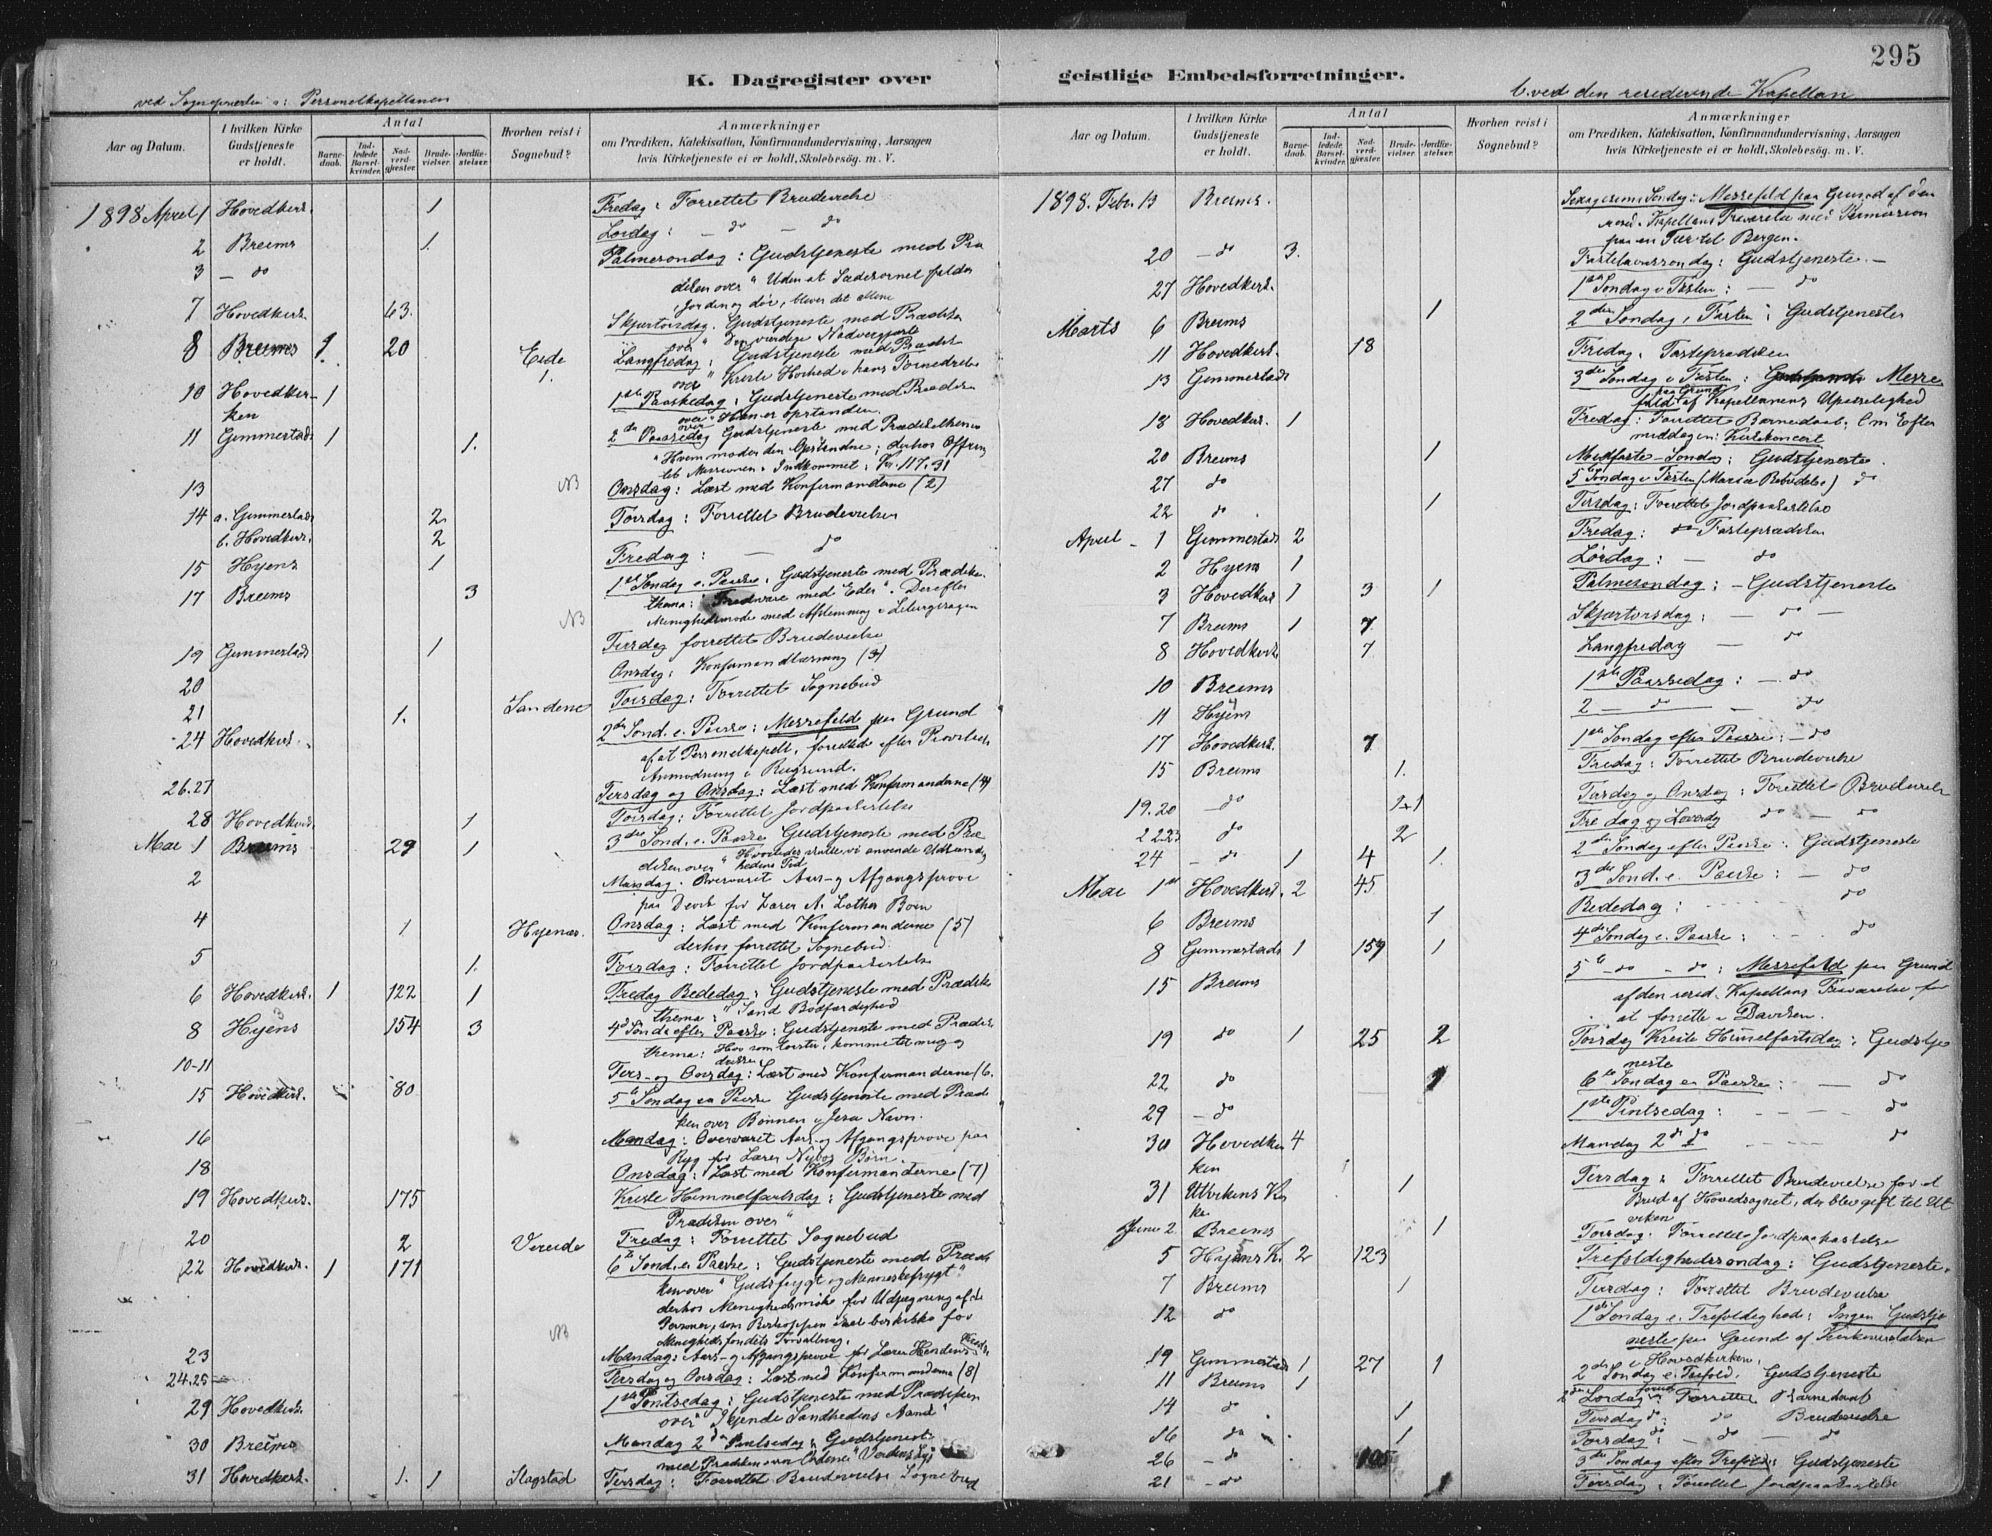 295
K. Dagregister over geistlige Embedsforretninger.
ved Sognepresten a: Personelkapellanen
b. ved den residerende Kapellan
Aar og Datum.
I hvilken Kirke Gudstjeneste er holdt.
Antal
Barnedaab.
Indledede Barselkvinder.
Nadverdgjester.
Brudevielser.
Jordfæstelser.
Hvorhen reist i Sognebud?
Anmærkninger
om Prædiken, Katekisation, Konfirmandundervisning, Aarsagen
hvis Kirketjeneste ei er holdt, Skolebesög. m. V.
1898 April 1 Hovedkirk. 1 Fredag: Forrettet Brudevielse
2 Breims 1. Lördag: — do — do
3 — do Palmesøndag: Gudstjeneste med Præ
diken over "Uden at Sædekornet falder
i Jorden og dör, bliver det alene
7 Hovedkirk. 63. Skjærtorsdag. Gudstjeneste med Prædik
over "Den værdige Nadvergjæst
8 Breims 1. 20 Eide 1. Langfredag: Gudstjeneste med Prædik
over "Kristi Höihed i hans Fornedrelse
10 Hovedkir- 1 1ste Paaskedag: Gudstjeneste med Prædiken
ken over "Han er opstanden.
11 Gimmestads 1 1. 2den Paaskedag Gudstjeneste med Prædikthema
"Hvem möder den Opstandne; derhos Offring
til Missionen. Indkommet: Kr. 117.31
13 NB Onsdag: Læst med Konfirmandene (2)
14 a. Gimmestads 2 Torsdag: Forrettet Brudevielser
b. Hovedkirk. 2
15 Hyens 1 Fredag: — do
17 Breims 3 1ste Söndag e. Paaske. Gudstjeneste med Prædike
thema: "Fred være med Eder". Derefter
NB Menighedsmöde med Afstemning i Liturgisagen
19 Gimmestads 1 Tirsdag forrettet Brudevielse
20 Onsdag: Konfirmandlæsning (3)
21 1. Sandene Torsdag: Forrettet Sognebud
24 Hovedkirk. 2den Sönd. e. Paaske: Messefald paa Grund
af at Personelkapell. forrettede efter Provstens
Anmodning i Rugsund.
26.27 Tirsdag og Onsdag: Læst med Konfirmandene (4)
28 Hovedkirk. 1 Torsdag: Forrettet Jordpaakastelse
Mai 1 Breims 29 1 3die Sönd. e. Paaske Gudstjeneste med Præ
diken over "Hvorledes skulle vi anvende Udlændig
hedens Tid
2 Mandag. Overværet Aars- og Afgangspröve
4 1 Hyenes. Onsdag: Læst med Konfirmanderne (5)
derhos forrettet Sognebud
5 1. Torsdag: Forrettet Jordpaakastelse
6 Hovedkirk. 1 122 1 Fredag Bededag: Gudstjeneste med Prædik
thema: "Sand Bodfærdighed
8 Hyens 154 3 4de Sönd. efter Paaske: Gudstjeneste med Prædik
thema: Hvo som törster, komme til mig og
drikke
10-11 Tirs- og Onsdag: Læst med Konfirmanderne (6.
15 Hovedkirk. 80 5te Söndag e. Paaske Gudstjeneste med Prædi
ken over Bönnen i Jesu Navn.
16 Mandag: Overværet Aars- og Afgangspröve paa
Ryg for Lærer Nybös Börn.
18 Onsdag: Læst med Konfirmanderne (7)
19 Hovedkirk. 175 Kristi Himmelfartsdag: Gudstjeneste med
Prædiken over "
20 2 Vereide Fredag: Forrettet Sognebud
22 Hovedkirk. 1 171 6te Sönd. e. Paaske: Gudstjeneste med Prædi
ken over "Gudsfrygt og Menneskefrygt"
derhos Menighedsmöde for Udpegning af de
Personer, som Biskoppen skal beskikke for
NB Menighedsfondets Forvaltning.
23 Mandag: Aars- og Afgangspröve for Lærer Hendens Kreds
24.25 Tirsdag og Onsdag: Læst med Konfirmanderne (8)
29 Hovedkirk. 1ste Pintsedag: Gudstjeneste med Prædiken
over "Sandhedens Aand"
30 Breims Mandag 2den Pintsedag: Gudstjeneste
med Prædiken over Ordene: "Verdens Lys
31 Hovedkirk. 1. 1 Slagstad Tirsdag: Forrettet Brudevielse Sognebud
1898. Febr. 13 Breims. Sexagesima Söndag: Messefald paa Grund af den
resid. Kapellans Fraværelse med Permission
paa en Tur til Bergen.
20 — do 3. Fastelavnssöndag: Gudstjeneste. —
27 Hovedkirk. 1ste Söndag i Fasten: — do
Marts 6 Breims 1 2den Söndag i Fasten: Gudstjeneste
11 Hovedkirk. 18 Fredag. Fasteprædiken
13 Gimmestads 3die Söndag i Fasten: Gudstjeneste Messe
fald paa Grund af Kapellanens Upasselighed
18 Hovedkirk. 1 Fredag: Forrettet Barnedaab; Om Efter
middagen: Kirkekoncert
20 Breims 1 Midfaste-Söndag: Gudstjeneste.
27 do 5te Söndag i Fasten (Mariæ Bebudelse) do
22 do. 1 Tirsdag: Forrettet Jordpaakastelse
April — 1 Gimmestads 2 Fredag: do Fasteprædiken
2 Hyens 1 Lördag: — do
3 Hovedkirk 1 3 1 Palmesöndag: — Gudstjeneste
7 Breims 1 7 Skjærtorsdag: — do —
8 Hovedkirk 7 Langfredag — do
10 Breims 1ste Paaskedag: — do
11 Hyens 2 — do — do
17 Hovedkirk. 7 1ste Söndag efter Paaske: — do
15 Breims 1. Fredag: Forrettet Brudevielse
19.20 — do 2+1 Tirsdag og Onsdag: Forrettet Brudevielse
22.23 do 2 Fredag og Löverdag do — do
24 — do 1 4 1 2den Söndag efter Paaske: Gudstjeneste
Mai 1ste Hovedkirk. 2 45 3die Sönd. e. Paaske: — do
6 Breims 1 Bededag: do
8 Gimmestads 1 159 1 4de Söndag e. Paaske: do
15 Breims 5te — do — do: Messefald paa Grund
af den resid. Kapellans Fraværelse for
at forrette i Daviken.
19 do 1 25 2 Torsdag Kristi Himmelfartsdag: Gudstje
neste
22 do 1 6te Söndag e. Paaske: — do
29 — do 1ste Pintsedag: do
30 Hovedkir 4 Mandag 2den do do
ken
31 Utvikens Kir 1 Tirsdag: Forrettet Brudevielse for et
ke Brud af Hovedsognet, der blev gift til Ut
viken
Juni 2 Breims 1 Torsdag. Forrettet Jordpaakastelse
5 Hyens K. 2 123 Trefoldighedssöndag: Gudstjeneste.
7 Breims 1 Tirsdag: Forrettet Brudevielse
12 do 1ste Söndag e. Trefoldighed: Ingen Gudstje
neste paa Grund af
i Hovedkirken.
19 Gimmestads 1 27 1 2den Söndag e. Trefold. Gudstjeneste
11 Breims 1 Lördag Forrettet Barnedaab
14 do 1 Tirsdag do: do Brudevielse
16 do 1 Torsdag do: — do — do
26 — do 105 3die Söndag efter Trefold: Gudstjeneste
21 — do 1 Tirsdag: Forrettet Jordpaakastelse